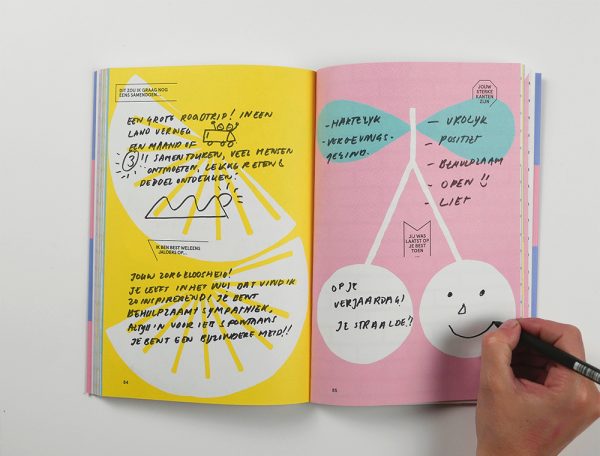 DIT ZOU IK GRAAG NOG
EENS SAMENDOEN...
EEN GROTE ROADTRIP! IN EEN
LAND VERWEG
EEN MAAND OF
3!! SAMEN TOUREN, VEEL MENSEN
ONTMOETEN, LEKKER ETEN &
DEBOEL ONTDEKKEN!
IK BEN BEST WELEENS
JALOERS OP...
JOUW ZORGELOOSHEID!
JE LEEFT IN HET NU, DAT VIND IK
ZO INSPIREREND! JE BENT
BEHULPZAAM, SYMPATHIEK,
ALTIJD IN VOOR IETS SPONTAANS
JE BENT EEN BIJZONDERE MEID!!
54
JOUW
STERKE
KANTEN
ZIJN
- HARTELYK
- VERGEVINGS-
GEZIND.
- VROLYK
- POSITIEF
- BEHULPZAAM
- OPEN !!
- LIEF
JIJ WAS
LAATST OP
JE BEST
TOEN
...
OP JE
VERJAARDAG!
JE STRAALDE!!
55